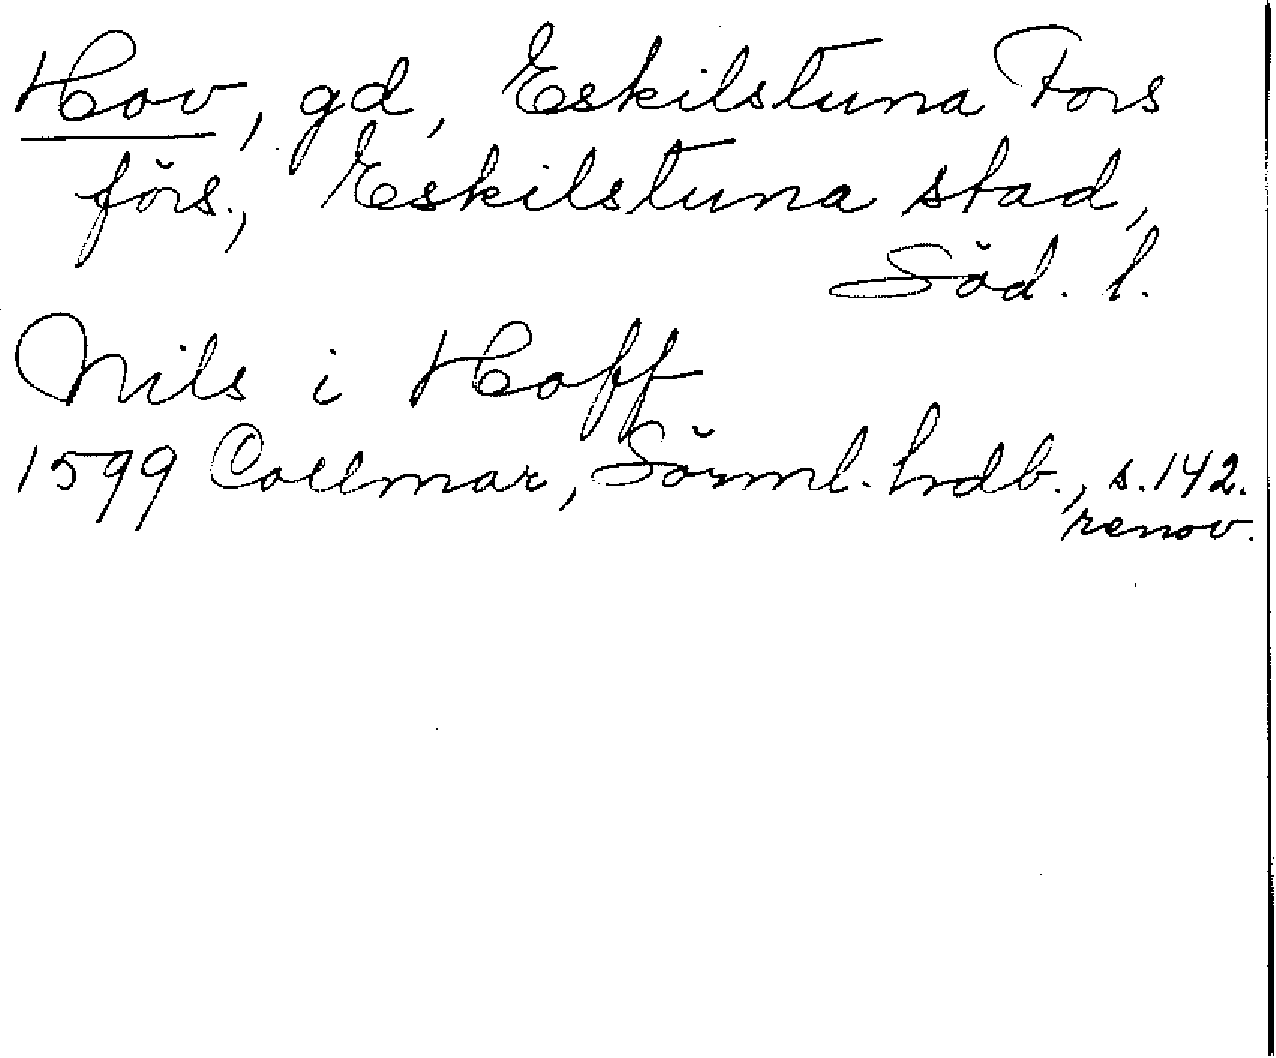 Hov, gd, Eskilstuna Fors
förs., Eskilstuna stad,
Söd. l.
Nils i Hoff
1599 Collmar, Sörml. hrdb., s. 142.
renov.